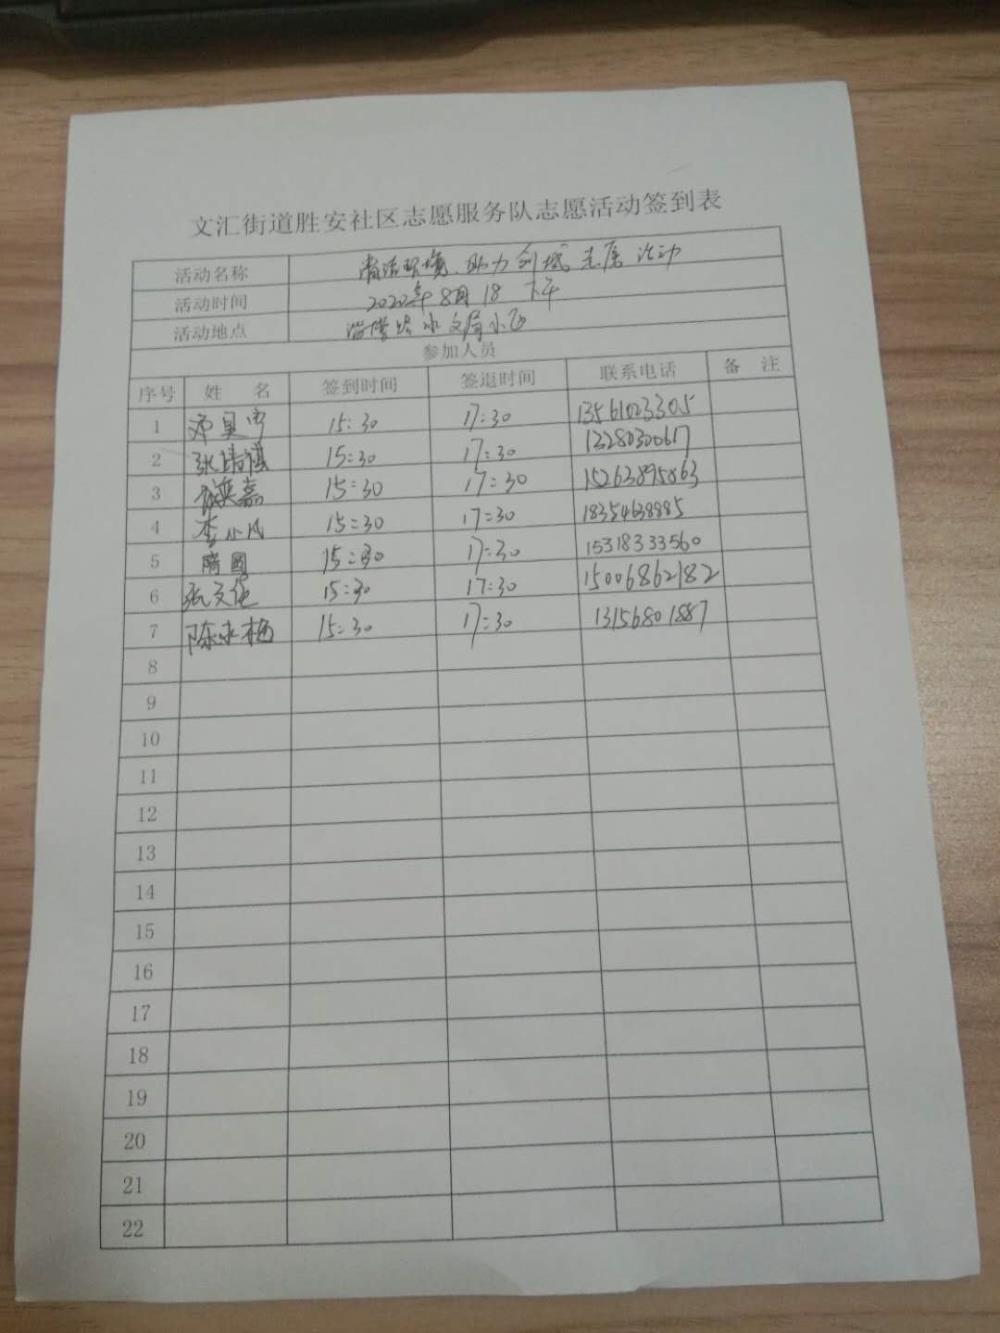 文汇街道胜安社区志愿服务队志愿活动签到表
活动名称 清洁环境、助力创城志愿活动
活动时间 2022年8月18 下午
活动地点 水文局小区
参加人员
序号 姓 名 签到时间 签退时间 联系电话 备 注
1 15:30 17:30 13561023305
2 张清祺 15:30 17:30 13280300617
3 15:30 17:30 15263895863
4 李小凤 15:30 17:30 18354638885
5 隋国 15:30 17:30 15318333560
6 张文华 15:30 17:30 15006862182
7 陈永梅 15:30 17:30 13156801887
8
9
10
11
12
13
14
15
16
17
18
19
20
21
22